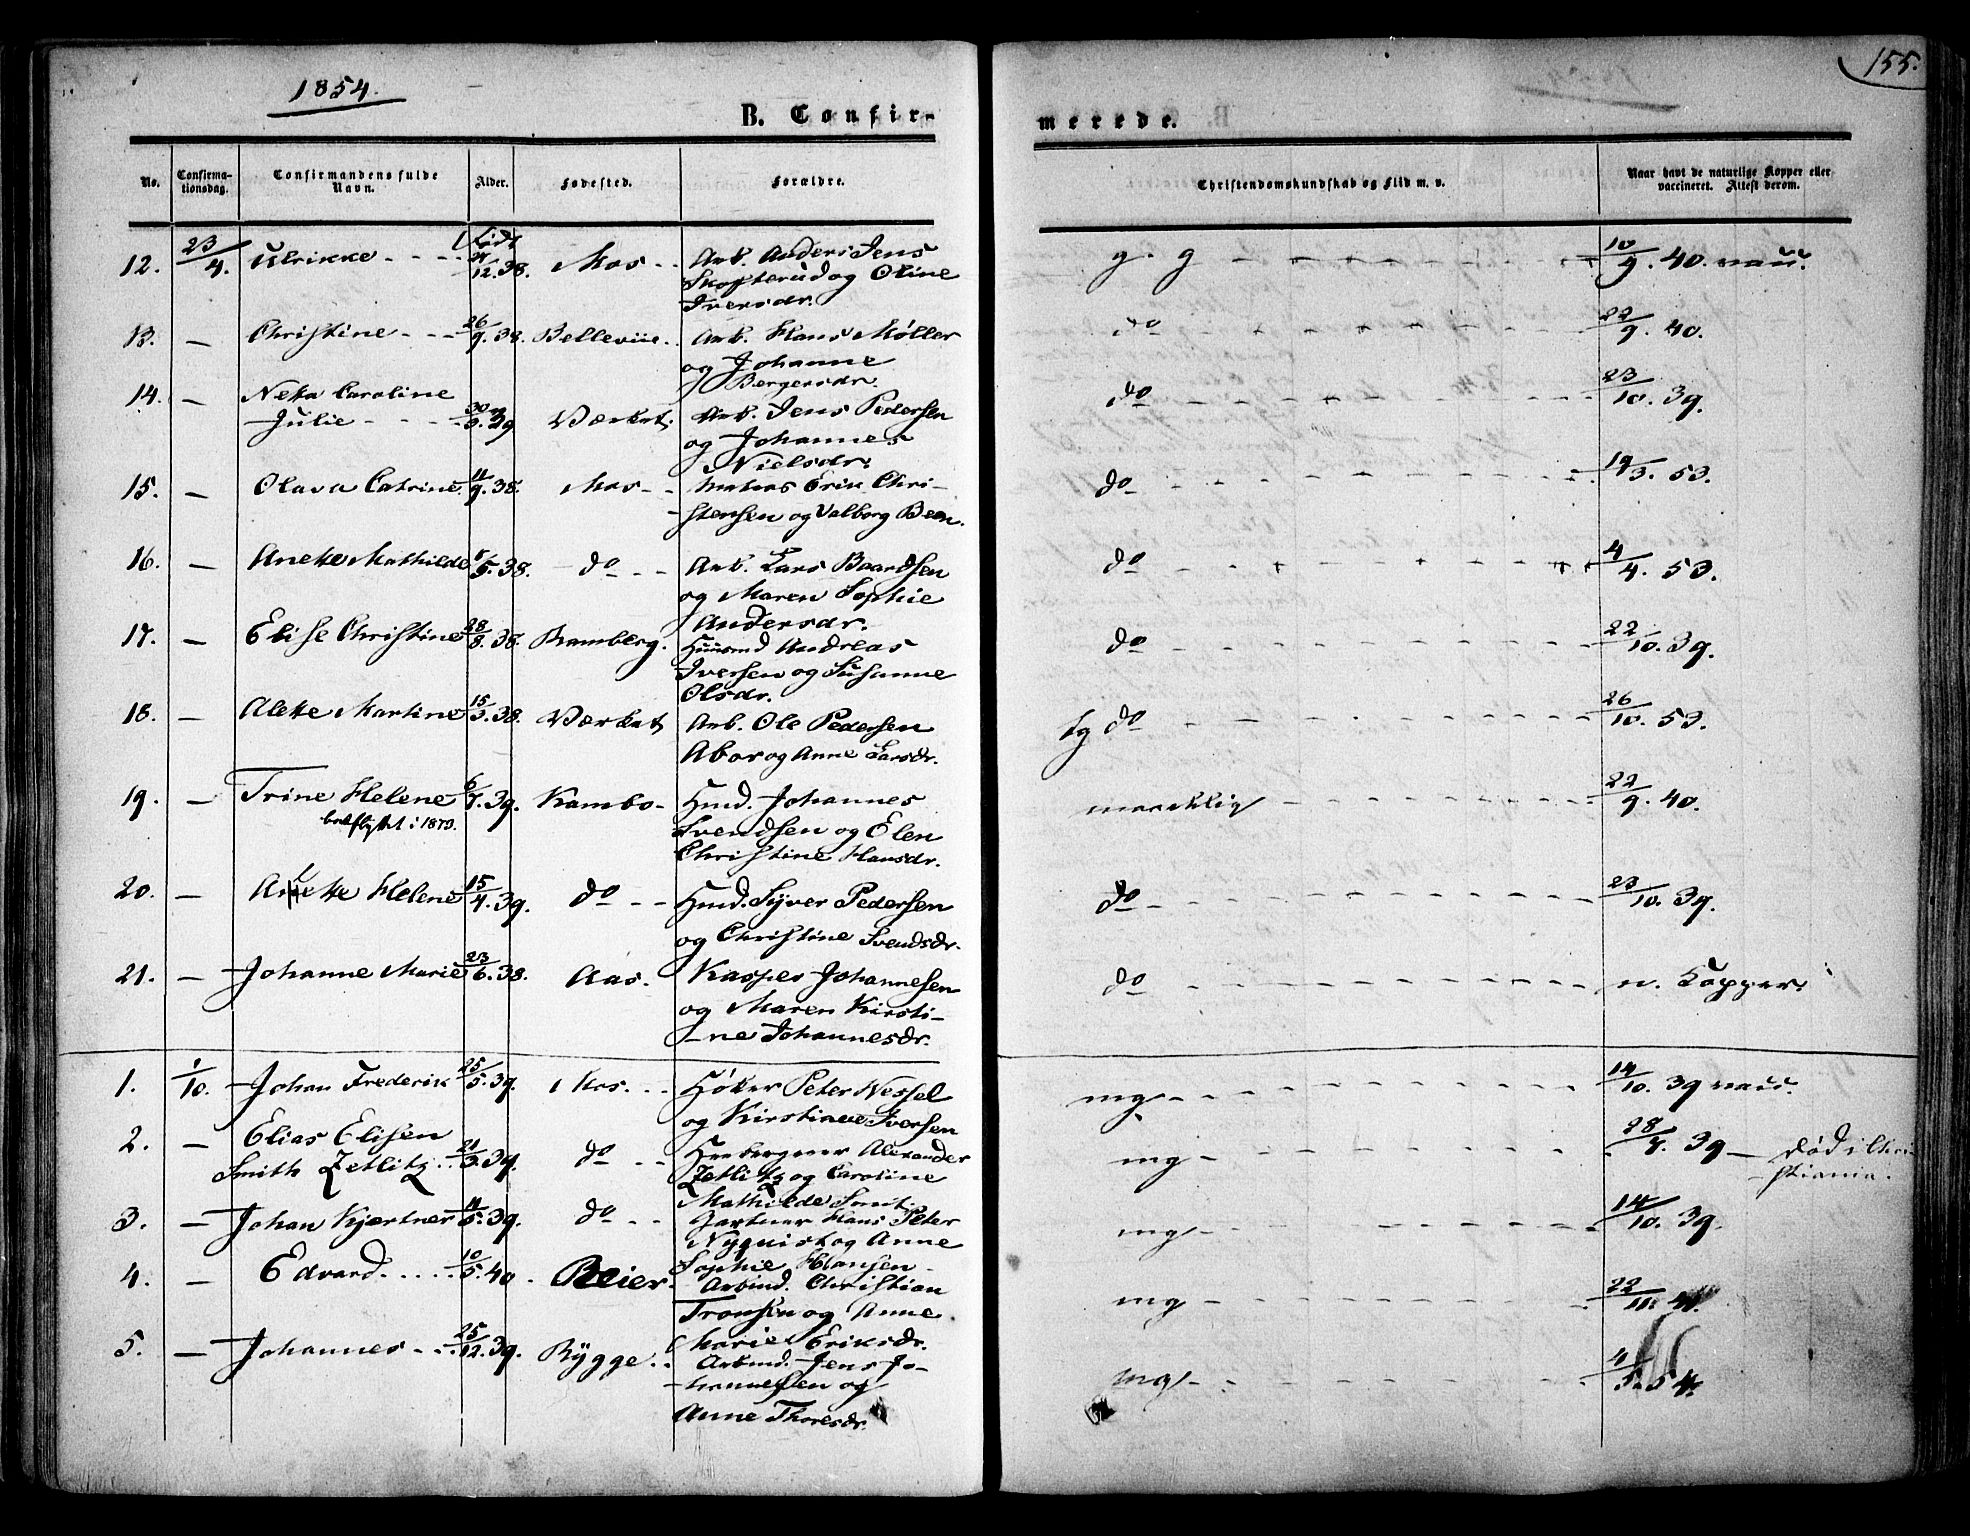 1854.
155.
B. Confir-
merede.
No.
Confirma-
tionsdag.
Confirmandens fulde
Navn.
Alder.
Fødested.
Forældre.
Christendomskundskab og Flid m. v.
Naar havt de naturlige Kopper eller
vaccineret. Attest derom.
12. 23/4. Ulrikke 21/12.38. Mos Arb. Anders Jens
Skofterud og Oline
Iversdr.
g. g 10/9. 40.
13. — Christine 26/9.38. Belleviie. Arb. Hans Møller
og Johanne
Bergersdr.
do 22/9. 40.
14. — Neka Caroline
Julie 30/3.39 Værket. Arb. Jens Pedersen
og Johannes
Nielsdr.
do 23/10. 39.
15. — Olava Catrine 11/9.38. Mos Matros Erik Chri-
stensen og Valborg Been.
do 19/3. 53.
16. — Anette Mathilde 5/9.38. do Arb. Lars Baardsen
og Maren Sophie
Andersdr.
do 4/4. 53.
17. — Elise Christine 28/8.38. Kamberg. Huusmd Andreas
Iversen og Susanne
Olsdr.
do 22/10. 39.
18. — Alette Martine 15/3.38. Værket Arb. Ole Pedersen
Abor og Anne Larsdr.
tg do 26/10. 53.
19. — Trine Helene 6/7.39. Kambo Hmd. Johannes
i 1873.
Svendsen og Elen
Christine Hansdr.
maadelig 22/9. 40.
20. — Alette Helene 15/4.39. do Hmd. Syver Pedersen
og Christine Svendsdr.
do 23/10. 39.
21. — Johanne Marie 23/6.38. Aas. Kasper Johannesen
og Maren Kirsti-
ne Johannesdr.
do n. Kopper.
1. 1/10. Johan Frederik 25/5.39. Mos. Høker Peter Wessel
og Kirstiane Iversen
mg 14/10. 39
2. — Elias Elisen
Smith Zetlitz 21/3.39. do Alexander
Zetlitz og Caroline
Mathilde Smit.
mg 28/7. 39 — død i Chri-
stiania.
3. — Johan Kjertner 11/5.39. do Gartner Hans Peter
Nyquist og Anne
Sophie Hansen
mg 14/10. 39.
4. — Edvard 10/5.40 Beier. Arbmd. Christian
Tronsen og Anne
Marie Eriksdr.
mg 22/11.
5. — Johannes 25/12.39. Rygge. Arbmd. Jens Jo-
hannessen og
Anne Thoresdr.
mg 4/5. 54.